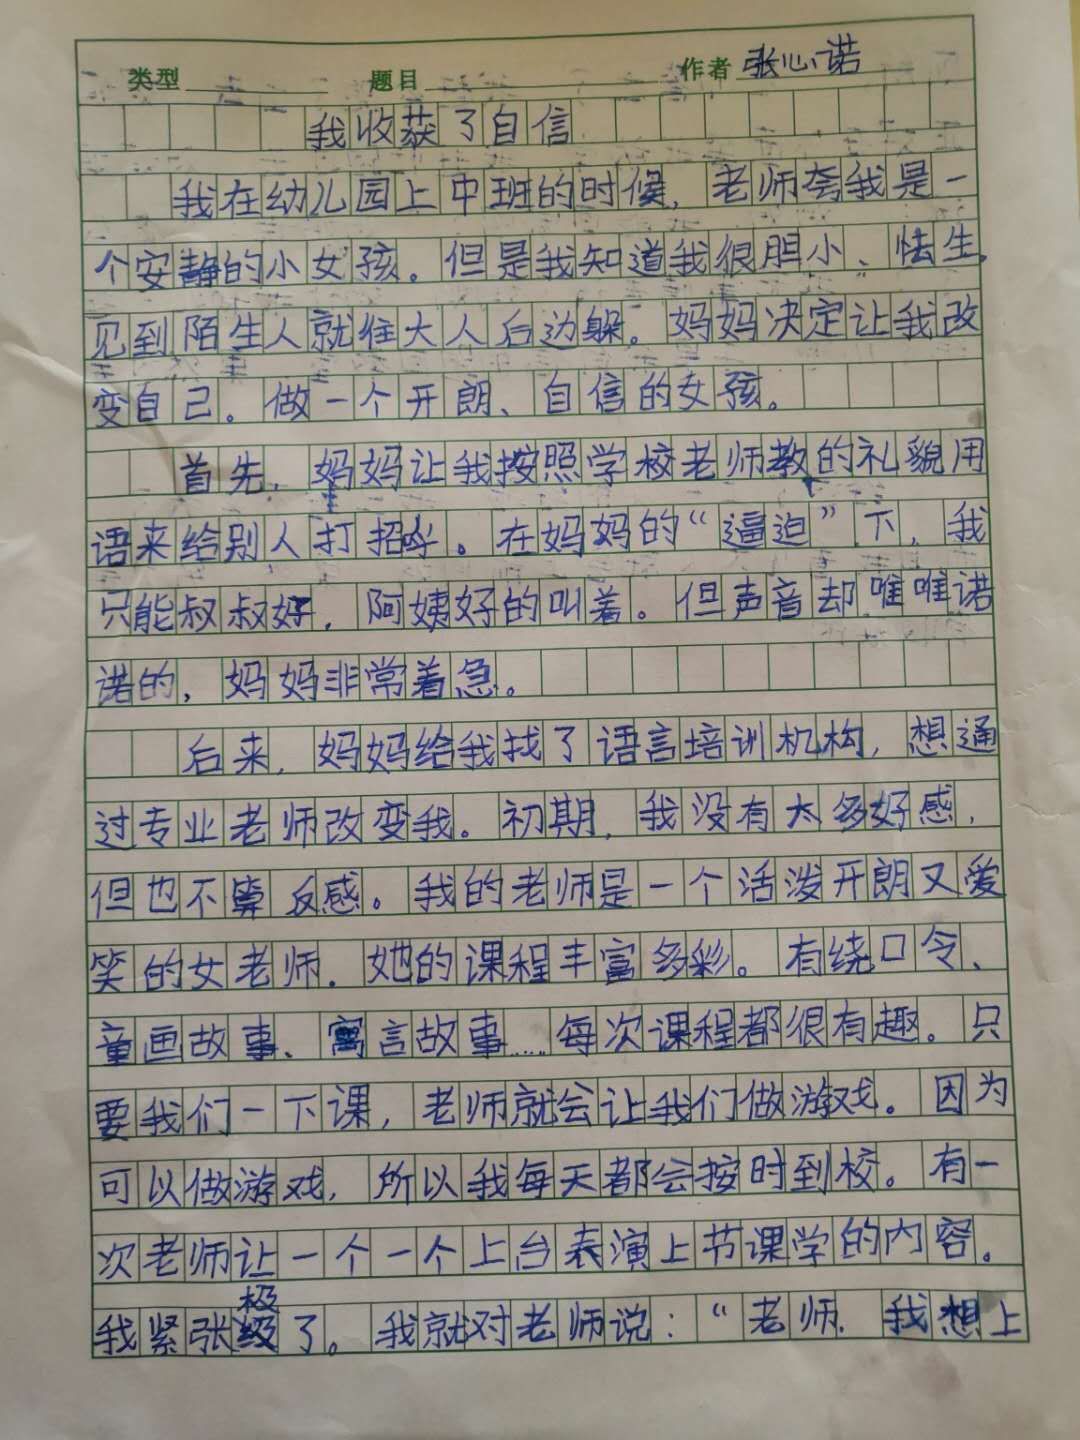 类型 题目 作者 张心诺
我收获了自信
我在幼儿园上中班的时候，老师夸我是一
个安静的小女孩。但是我知道我很胆小、怯生，
见到陌生人就往大人后边躲。妈妈决定让我改
变自己。做一个开朗、自信的女孩。
首先，妈妈让我按照学校老师教的礼貌用
语来给别人打招呼。在妈妈的“逼迫”下，我
只能叔叔好，阿姨好的叫着。但声音却唯唯诺
诺的，妈妈非常着急。
后来，妈妈给我找了语言培训机构，想通
过专业老师改变我。初期，我没有太多好感，
但也不算反感。我的老师是一个活泼开朗又爱
笑的女老师．她的课程丰富多彩。有绕口令、
童画故事、寓言故事……每次课程都很有趣。只
要我们一下课，老师就会让我们做游戏。因为
可以做游戏，所以我每天都会按时到校。有一
次老师让一个一个上台表演上节课学的内容。
我紧张极了。我就对老师说：“老师．我想上